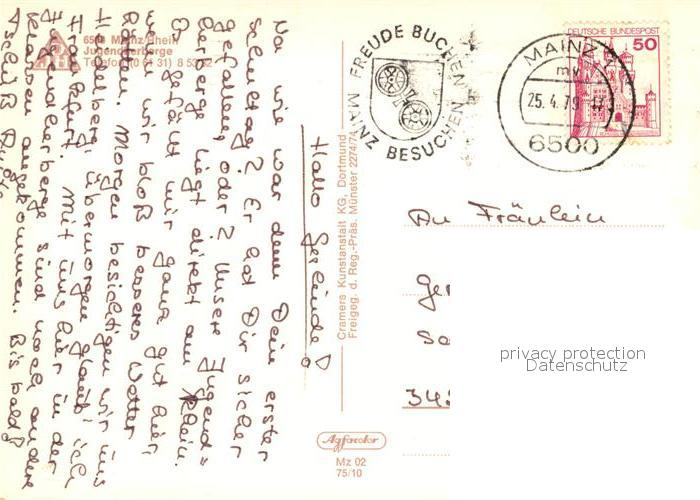 6500 Mainz/Rhein
Jugendherberge
Telefon (0 61 31) 8 53 32
Hallo Gerlinde!
Na wie war denn Dein erster
Schultag? Er hat Dir sicher
gefallen, oder? Unsere Jugend=
herberge liegt direkt am Rhein.
Es gefällt mir ganz gut hier,
wenn wir bloß besseres Wetter
hätten. Morgen besichtigen wir uns
Heidelberg, übermorgen glaub ich
Frankfurt. Mit uns hier in der
Jugendherberge sind noch andere
Klassen angekommen. Bis bald!
Tschüß
Cramers Kunstanstalt KG, Dortmund
Freigeg. d. Reg.-Präs. Münster 2274/74
FREUDE BUCHEN
MAINZ BESUCHEN
DEUTSCHE BUNDESPOST
50
MAINZ 1
mv
25.4.79
6500
An Fräulein
Ger
privacy protection
Datenschutz
Agfacolor
Mz 02
75/10